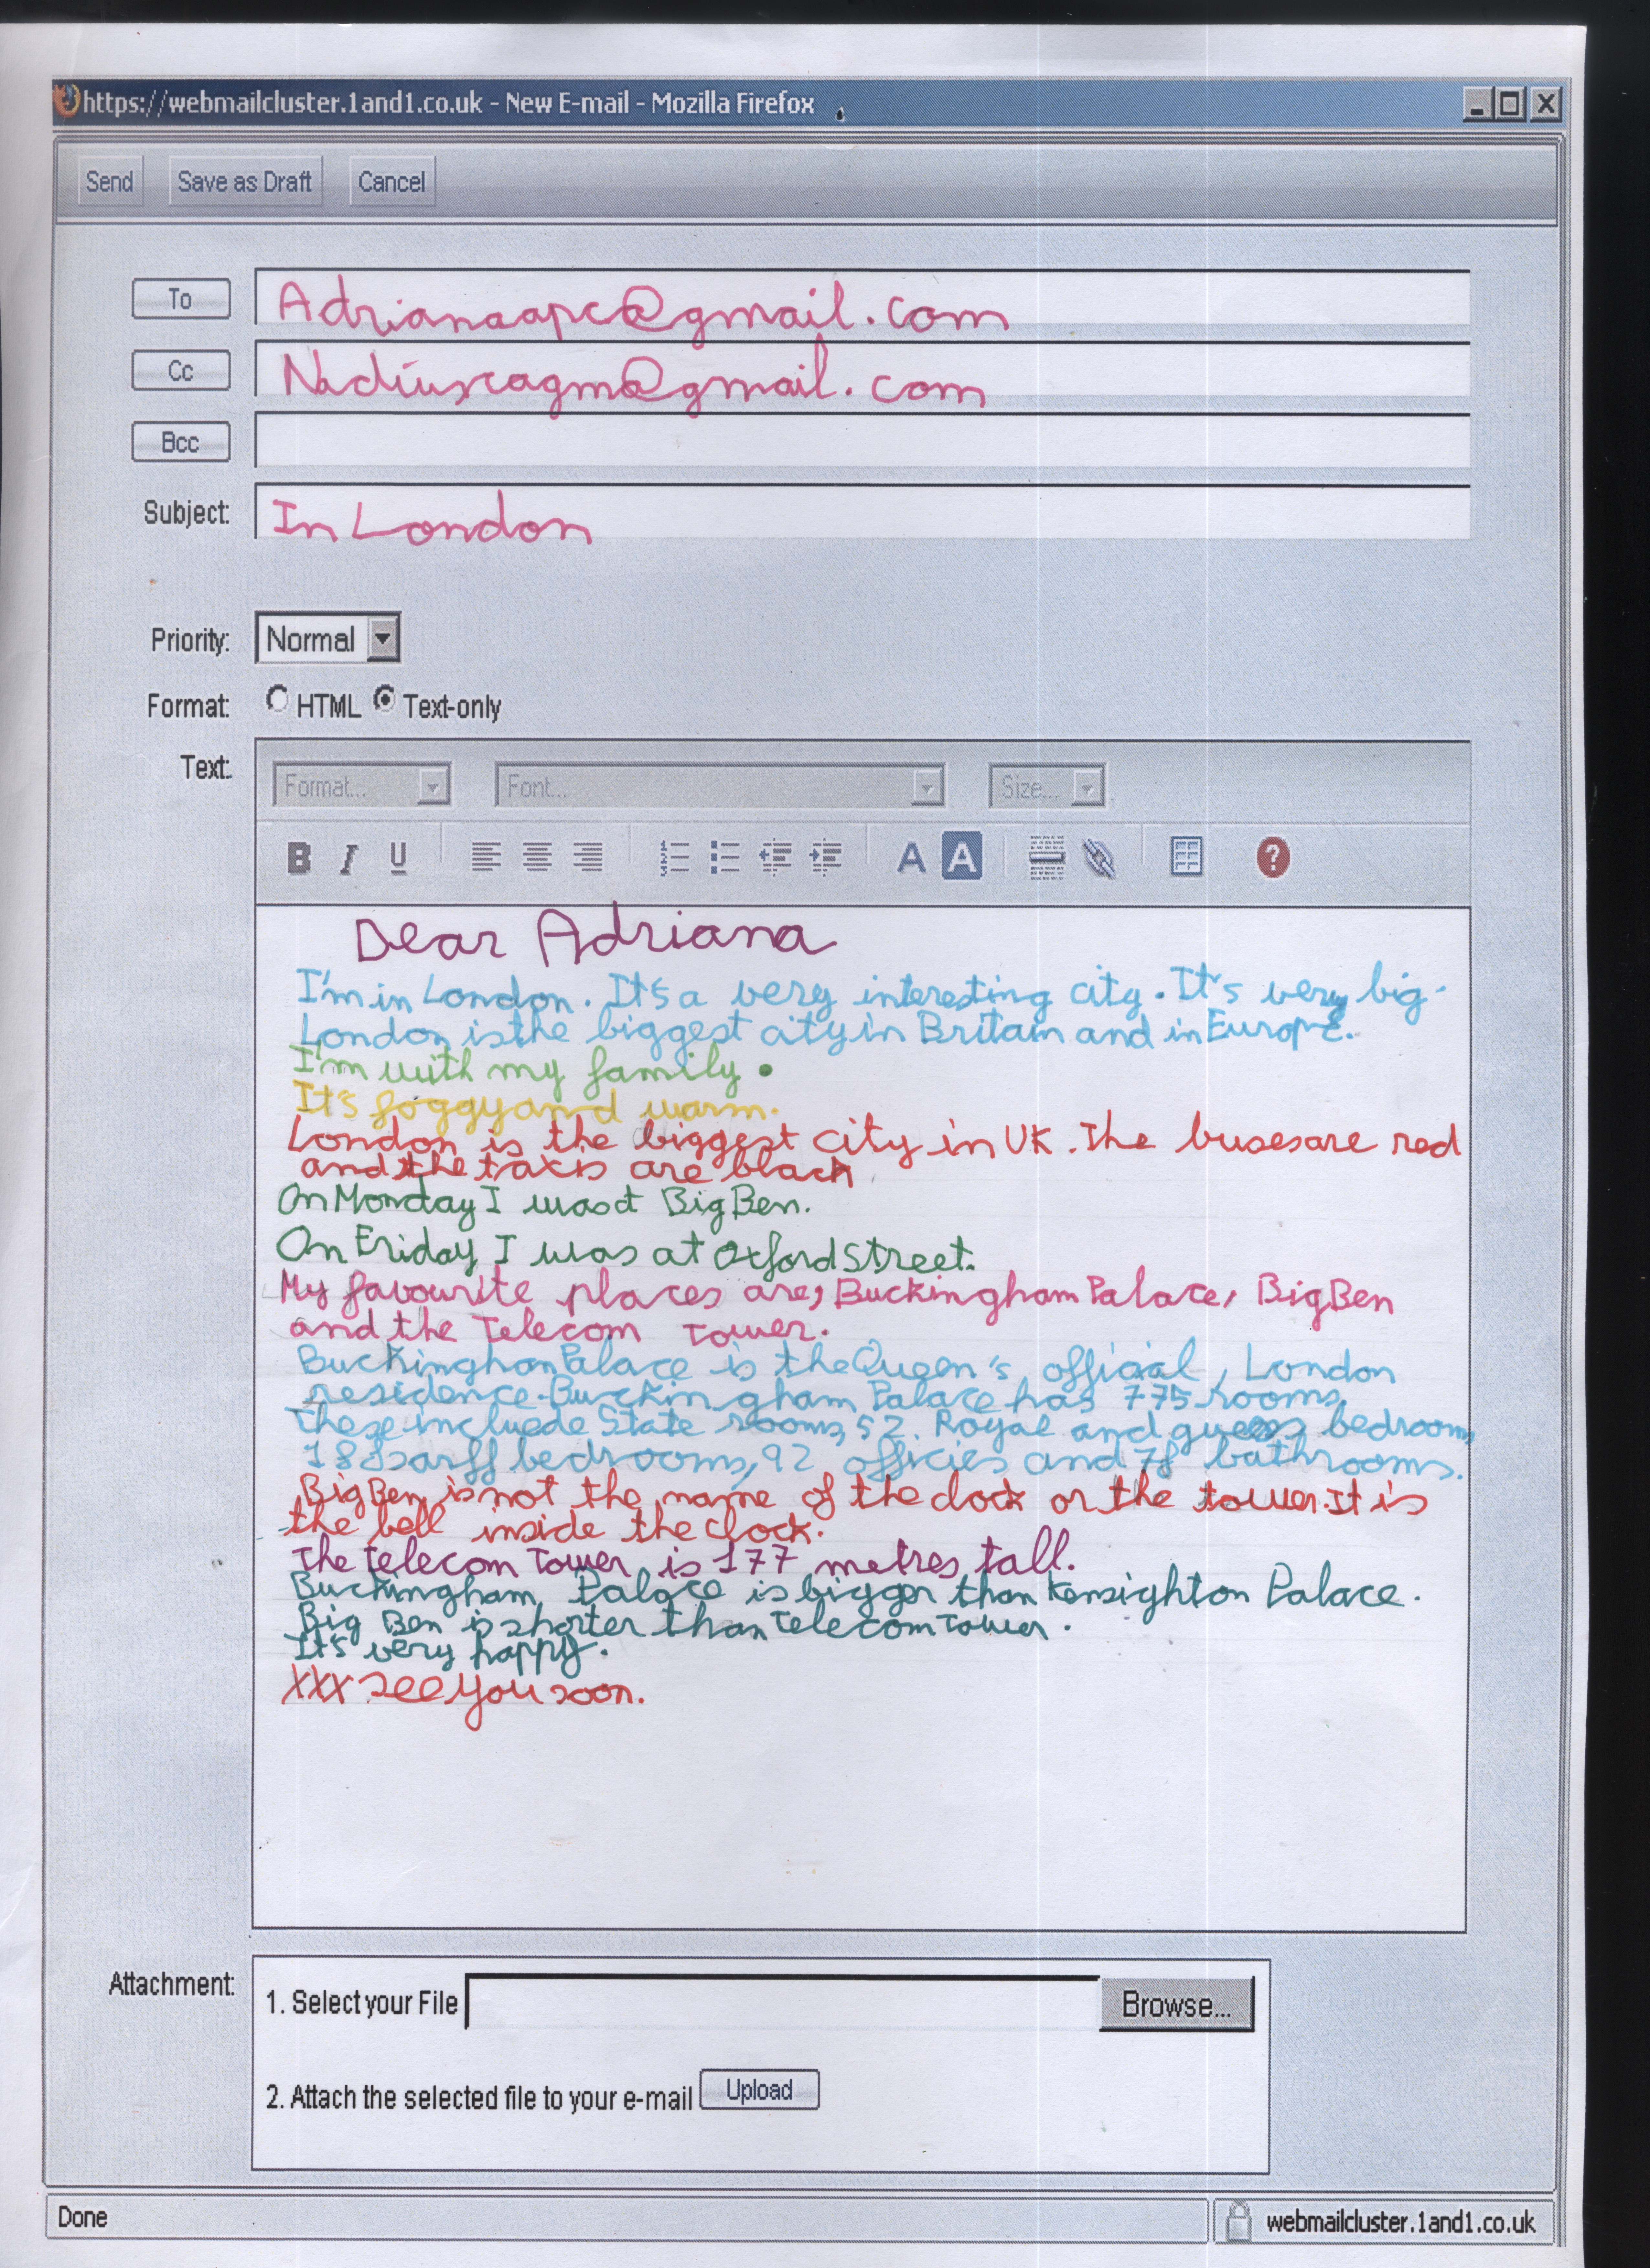 https://webmailcluster.1and1.co.uk - New E-mail - Mozilla Firefox
Send Save as Draft Cancel
To Adrianaapc@gmail.com
Cc Nadiuscagm@gmail.com
Bcc
Subject: In London
Priority: Normal
Format: HTML Text-only
Text: Format... Font... Size...
B I U A A ?
Dear Adriana
I'm in London. It's a very interesting city. It's very big.
London is the biggest city in Britain and in Europe.
I'm with my family.
It's foggy and warm.
London is the biggest city in UK. The buses are red
and the taxis are black
On Monday I was at Big Ben.
On Friday I was at Oxford Street.
My favourite places are, Buckingham Palace, Big Ben
and the Telecom Tower.
Buckingham Palace is the Queen's official, London
residence. Buckingham Palace has 775 rooms.
These incluede State rooms, 52 Royal and bedrooms,
188 bedrooms, 92 officies and 78 bathrooms.
Big Ben is not the name of the clock or the tower. It is
the bell inside the clock.
The Telecom Tower is 177 metres tall.
Buckingham Palace is bigger than Kensighton Palace.
Big Ben is shorter than Telecom Tower.
It's very happy.
XXX see you soon.
Attachment: 1. Select your File Browse...
2. Attach the selected file to your e-mail Upload
Done webmailcluster.1and1.co.uk